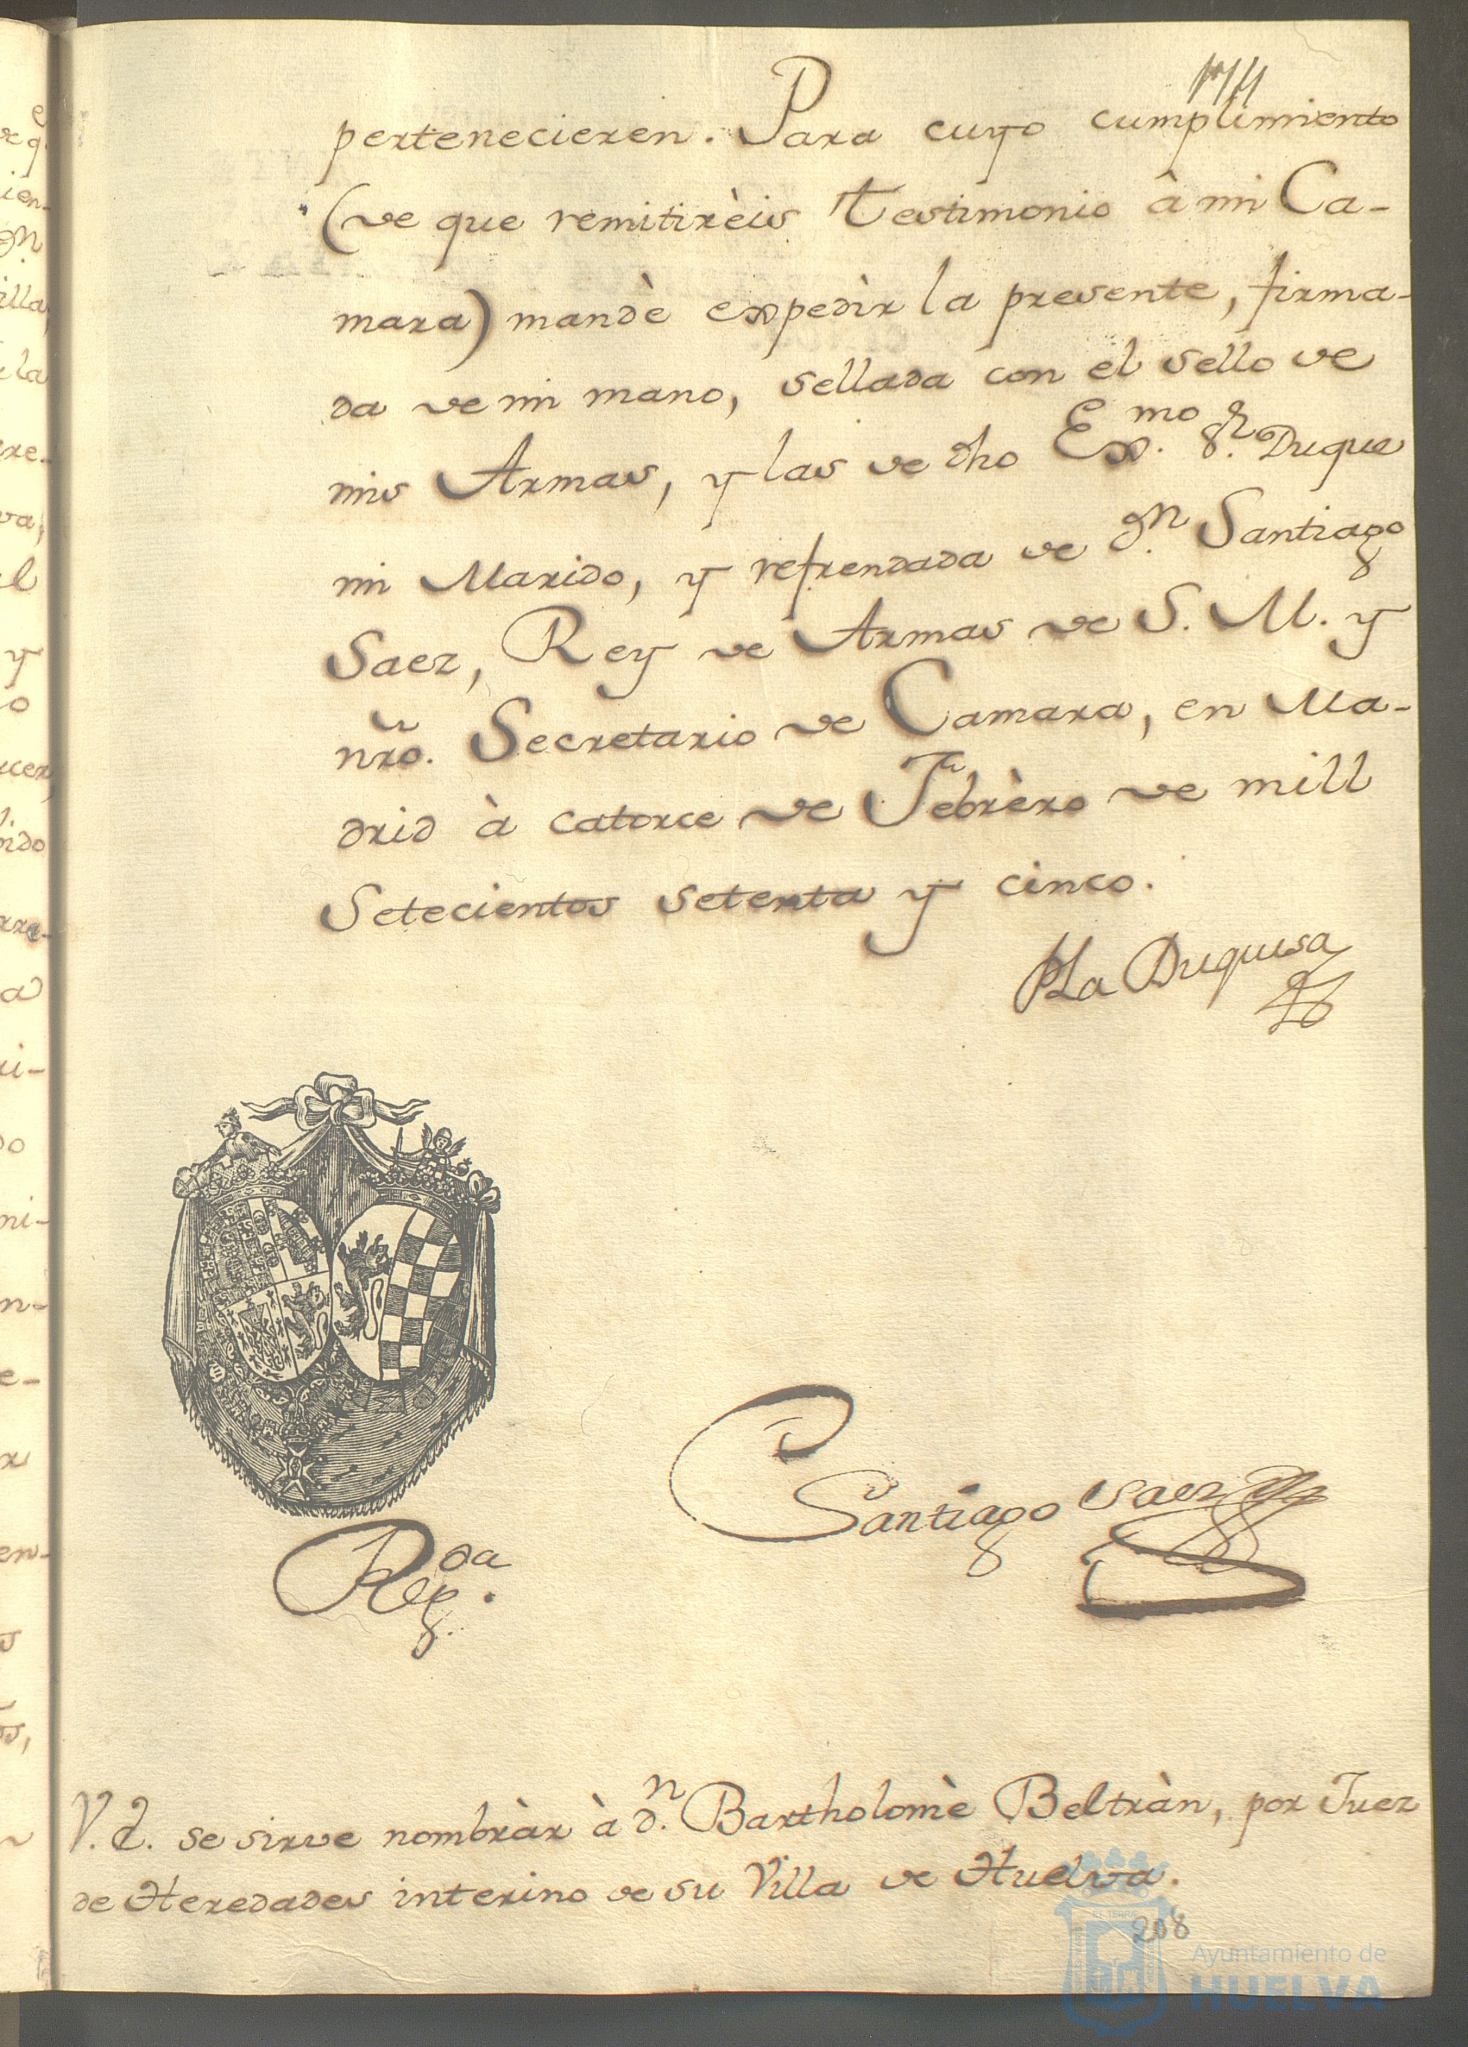 pertenecieren. Para cuyo cumplimiento
(de que remitirèis Testimonio à mi Ca-
mara) mandè expedìr la presente, firma-
da de mi mano, sellada con el sello de
mis Armas, y las de dho Exmo. Sr. Duque
mi Marido, y refrendada de Dn. Santiago
Saez, Rey de Armas de S. M. y
nro. Secretario de Camara, en Ma-
drid à catorce de Febrèro de mill
Setecientos setenta y cinco.
La Duquesa
Santiago Saez
Regda.
V. E. se sirve nombràr à Dn. Bartholomè Beltràn, por Juez
de Heredades interino de su Villa de Huelva.
208
Ayuntamiento de
HUELVA